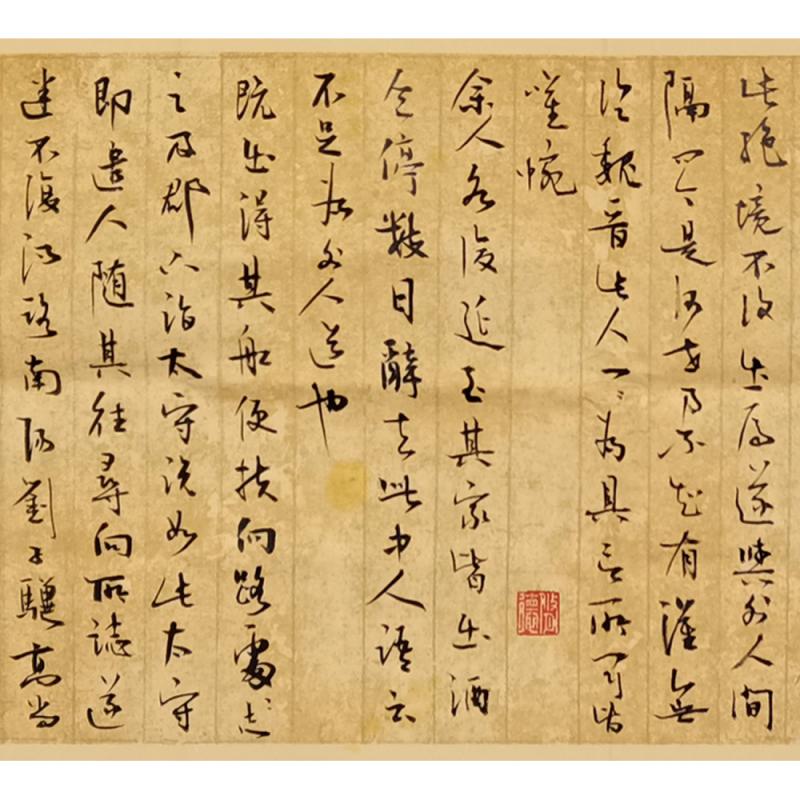 此絶境不復出焉遂與外人間
隔問今是何世乃不知有漢無
論魏晉此人一一為具言所聞皆
嘆惋
余人各復延至其家皆出酒
食停數日辭去此中人語云
不足為外人道也
既出得其船便扶向路處〻志
之及郡下詣太守說如此太守
即遣人隨其往尋向所誌遂
迷不復得路南陽劉子驥高尚